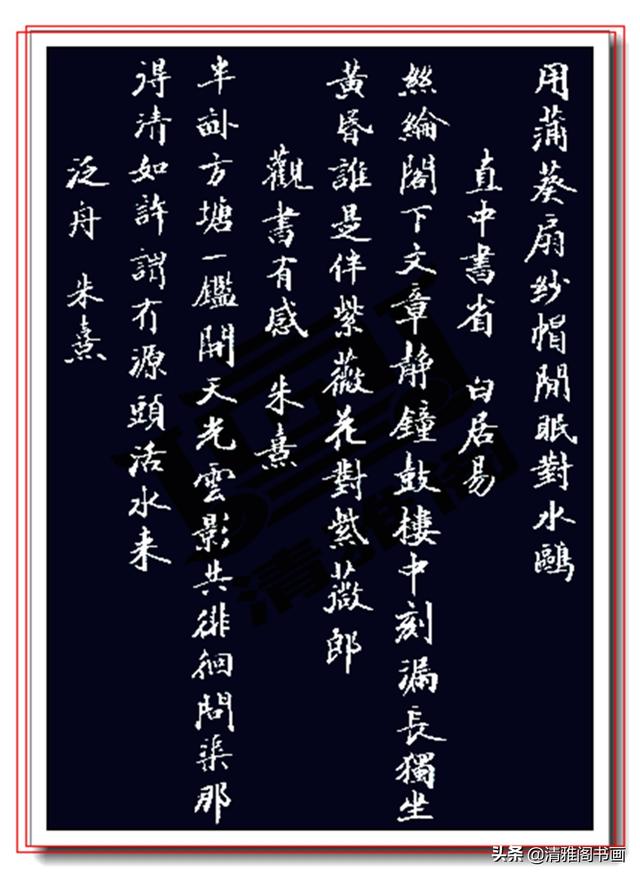 用蒲葵扇紗帽閒眠對水鷗
直中書省 白居易
絲綸閣下文章靜鐘鼓樓中刻漏長獨坐
黃昏誰是伴紫薇花對紫薇郎
觀書有感 朱熹
半畝方塘一鑑開天光雲影共徘徊問渠那
得清如許謂有源頭活水来
泛舟 朱熹
清雅阁
头条@清雅阁书画